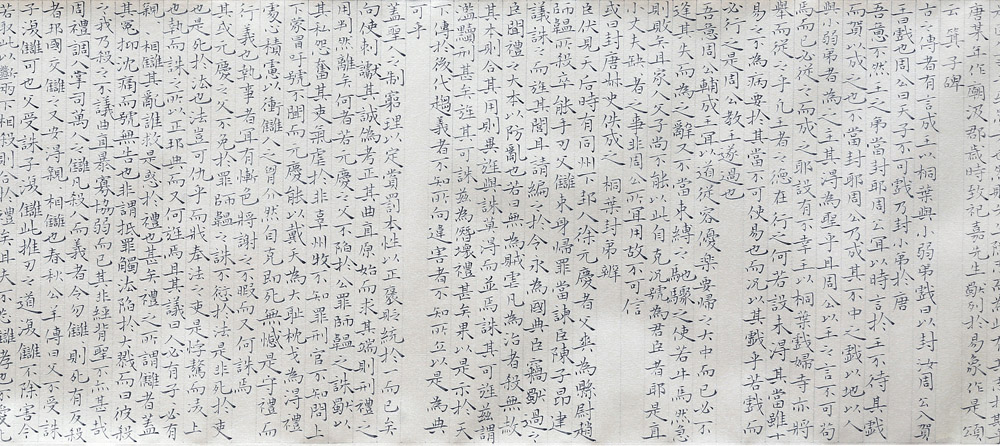 唐某年作廟汲郡歲時致祀嘉先生獨列於易象作是頌
云 箕子碑
古之傳者有言成王以桐葉與小弱弟戲曰以封汝周公入賀
王曰戲也周公曰天子不可戲乃封小弱弟於唐
吾意不然王之弟當封耶周公宜以時言於王不待其戲
而賀以成之也不當封耶周公乃成其不中之戲以地以人
與小弱弟者為之主其得為聖乎且周公以王之言不可苟
焉而已必從而成之耶設有不幸王以桐葉戲婦寺亦將
舉而從之乎凡王者之德在行之何若設未得其當雖十
易之不為病要於其當不可使易也而況以其戲乎若戲而
必行之是周公教王遂過也
吾意周公輔成王宜以道從容優樂要歸之大中而已必不
逢其失而為之辭又不當束縛之馳驟之使若牛馬然急
則敗矣且家人父子尚不能以此自克況號為君臣者耶是直
小丈夫缺缺者之事非周公所宜用故不可信
或曰封唐叔史佚成之 桐葉封弟辯
臣伏見天后時有同州下邽人徐元慶者父爽為縣尉趙
師韞所殺卒能手刃父讎束身歸罪當時諫臣陳子昂建
議誅之而旌其閭且請編之於令永為國典臣竊獨過之
臣聞禮之大本以防亂也若曰無為賊虐凡為治者殺無赦
其本則合其用則異旌與誅莫得而並焉誅其可旌茲謂
濫黷刑甚矣旌其可誅茲謂僭壞禮甚矣果以是示於天
下傳於後代趨義者不知所向違害者不知所立以是為典
可乎
蓋聖人之制窮理以定賞罰本性以正褒貶統於一而已矣
向使刺讞其誠偽考正其曲直原始而求其端則刑禮之
用判然離矣何者若元慶之父不陷於公罪師韞之誅獨以
其私怨奮其吏氣虐於非辜州牧不知罪刑官不知問上
下蒙冒籲號不聞而元慶能以戴天為大恥枕戈為得禮
處心積慮以衝讎人之胸介然自克即死無憾是守禮而
行義也執事者宜有慚色將謝之不暇而又何誅焉
其或元慶之父不免於罪師韞之誅不愆於法是非死於吏
也是死於法也法豈可仇乎而戕奉法之吏是悖驁而凌上
也執而誅之所以正邦典而又何旌焉且其議曰人必有子子必有
親親親相讎其亂誰救是惑於禮也甚矣禮之所謂讎者蓋
其冤抑沈痛而號無告也非謂抵罪觸法陷於大戮而曰彼殺
之我乃殺之不議曲直暴寡脅弱而已其非經背聖不亦甚哉
周禮調人掌司萬人之讎凡殺人而義者令勿讎讎則死有反殺
者邦國交讎之又安得親親相讎也春秋公羊傳曰父不受誅
子復讎可也父受誅子復讎此推刃之道復讎不除害今
若取此以斷兩下相殺則合於禮矣且夫不忘讎孝也不愛死